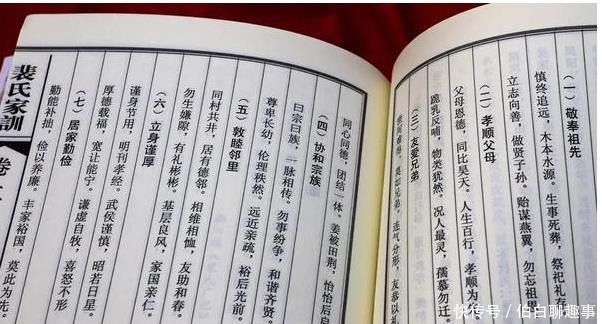 (一) 敬奉祖先
慎终追远,木本水源。生事死葬,祭祀礼
立志向善,做贤子孙。贻谋燕翼,勿忘祖
(二) 孝顺父母
父母恩德,同比昊天。人生百行,孝顺为
跪乳反哺,物类犹然。况人最灵,孺慕勿迁。
(三) 友爱兄弟
莫如兄弟。连气分形,友恭以礼
同心同德,团结一体。姜被田荆,怡怡后启
(四) 协和宗族
曰宗曰族,一脉相传。勿事纷争,和谐齐贤。
尊卑长幼,伦理秩然。远近亲疏,裕后光前。
(五) 敦睦邻里
同村共井,居有德邻。相维相恤,友助和春。
勿生嫌隙,有礼彬彬。基层良风,家国亲仁。
(六) 立身谨厚
谨身节用,明刊孝经。武侯谨慎,昭若日星。
厚德载福,宽让能宁。谦虚自牧,喜怒不形
(七) 居家勤俭
勤能补拙,俭以养廉。丰家裕国,莫此为先
裴氏家訓 卷
快传号 / 伯白聊趣事